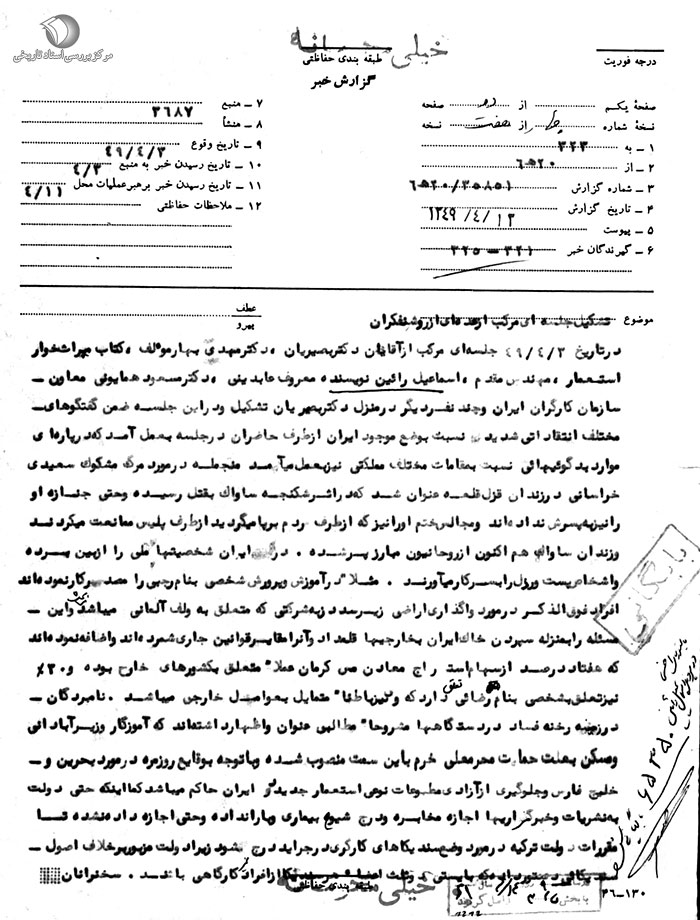 مرکز بررسی اسناد تاریخی
خیلی محرمانه
طبقه بندی حفاظتی
گزارش خبر
درجه فوریت
صفحهٔ یکم از دو صفحه
نسخهٔ شماره چهار از هفت نسخه
۱ ـ به ۳۲۳
۲ ـ از ۲۰ ه‍ ۶
۳ ـ شماره گزارش ۲۰/۳۰۸۵۱ ه‍ ۶
۴ ـ تاریخ گزارش ۱۳۴۹/۴/۱۳
۵ ـ پیوست
۶ ـ گیرندگان خبر ۳۲۱ ـ ۳۲۵
۷ ـ منبع ۳۶۸۷
۸ ـ منشأ
۹ ـ تاریخ وقوع ۴۹/۴/۳
۱۰ ـ تاریخ رسیدن خبر به منبع ۴/۳
۱۱ ـ تاریخ رسیدن خبر برهبرعملیات محل ۴/۱۱
۱۲ ـ ملاحظات حفاظتی
موضوع تشکیل جلسه ای مرکب ازعده ای ازروشنفکران
عطف
پیرو
درتاریخ ۴۹/۴/۳ جلسه‌ای مرکب ازآقایان دکتربصیریان ، دکترمهدی بهارمولف ، کتاب میراث‌خوار
استعمار ، مهندس مقدم ، اسماعیل رائین نویسنده معروف عابدینی ، دکترمسعود همایونی معاون ـ
سازمان کارگران ایران وچند نفردیگر درمنزل دکتربصیریان تشکیل ودراین جلسه ضمن گفتگوهای ـ
مختلف انتقاداتی شدید نسبت بوضع موجود ایران ازطرف حاضران درجلسه بعمل آمد که درپاره ای
موارد بدگوئیهائی نسبت بمقامات مختلف مملکتی نیزبعمل میآمد منجمله درمورد مرگ مشکوک سعیدی
خراسانی درزندان قزل قلعه عنوان شد که دراثرشکنجه ساواک بقتل رسیده وحتی جنازه او
رانیزبه پسرش نداده‌اند ومجالس ختم اورانیز که ازطرف مردم برپامیگردید ازطرف پلیس ممانعت میکردند
وزندان ساواک هم اکنون ازروحانیون مبارز پرشده . در ایران شخصیتهای ملی را ازبین برده
واشخاص پست ورذل رابسرکارمیآورند . مثلا" درآموزش وپرورش شخصی بنام رجبی را مصدرکارنموده‌اند
افراد فوق الذکر درمورد واگذاری اراضی زیرسد دز به شرکتی که متعلق به ولف آلمانی میباشد بحث واین ـ
مسئله رابمنزله سپردن خاک ایران بخارجیها قلمداد وآنرا مغایرقوانین جاری شمرده‌اند واضافه نموده‌اند
که هفتاد درصد ازسهام استخراج معادن مس کرمان عملا" متعلق بکشورهای خارج بوده و ۳۰٪
نیزتعلق بشخصی بنام رضائی دارد که وی نیزباطنا" متمایل بعوامل خارجی میباشد . نامبردگان ـ
درزمینه رخنه فساد دردستگاهها مشروحا" مطالبی عنوان واظهارداشته‌اند که آموزگار وزیرآبادانی
ومسکن بعلت حمایت محرمعلی خرم باین سمت منصوب شده وباتوجه بوقایع روزمره درمورد بحرین و ـ
خلیج فارس وجلوگیری ازآزادی مطبوعات نوعی استعمار جدید در ایران حاکم میباشد کما اینکه حتی دولت
به‌نشریات وخبرگزاریها اجازه مخابره ودرج شیوع بیماری وبارانداده وحتی اجازه داده نشده تا
مقررات دولت ترکیه درمورد وضع سندیکاهای کارگری درجراید درج شود زیرا دولت مزبوربرخلاف اصول ـ
افراد کارگاهی باشد . سخنرانان
بایگانی
خیلی محرمانه
طبقه بندی حفاظتی
۳۶ـ۱۳۰